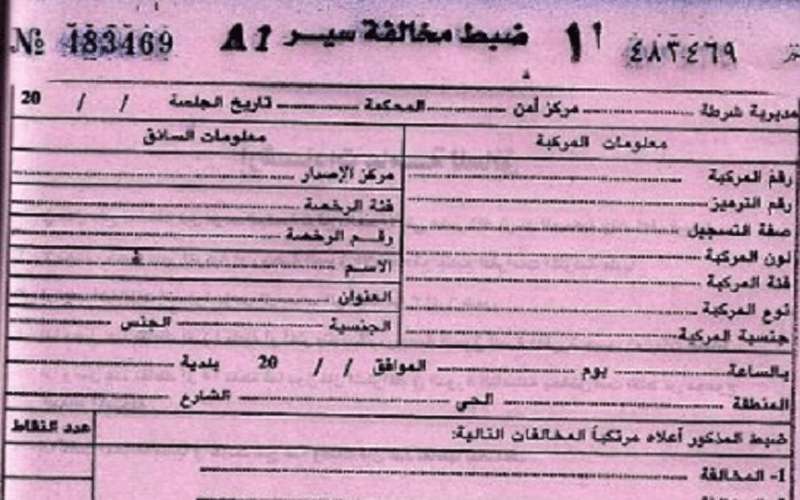 № 483469 A1 ضبط مخالفة سير أ 1 ٤٨٣٤٦٩
مديرية شرطة مركز أمن المحكمة تاريخ الجلسة / / 20
معلومات المركبة
رقم المركبة
رقم الترميز
صفة التسجيل
لون المركبة
فئة المركبة
نوع المركبة
جنسية المركبة
معلومات السائق
مركز الإصدار
فئة الرخصة
رقم الرخصة
الاسم
العنوان
الجنسية الجنس
بالساعة يوم الموافق / / 20 بلدية
المنطقة الحي الشارع
ضبط المذكور أعلاه مرتكباً المخالفات التالية: عدد النقاط
1- المخالفة